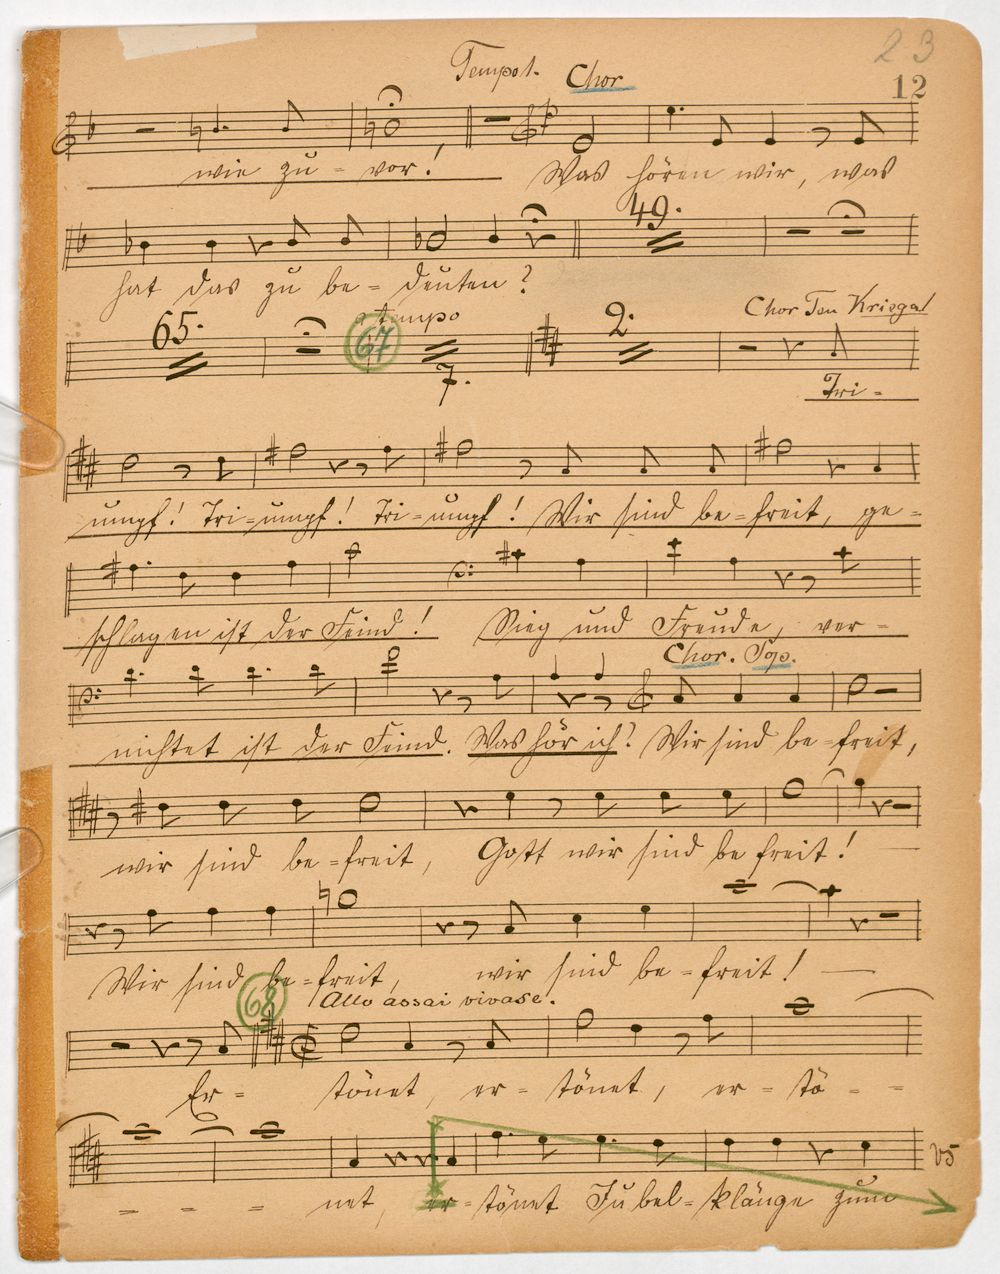 23
12
Tempo I. Chor
wie zu = vor! Was hören wir, was
49.
hat das zu be = deuten?
65. a tempo 67 7. 2. Chor Ten Kriegal
Tri =
umpf! Tri = umpf! Tri = umpf! Wir sind be = freit, ge =
schlagen ist der Feind! Sieg und Freude, ver =
Chor. Sop.
nichtet ist der Feind. Was hör ich? Wir sind be = freit,
wir sind be = freit, Gott wir sind be freit!
Wir sind be = freit, wir sind be = freit!
68 Allo assai vivase.
Er = tönet, er = tönet, er = tö - -
- - - - net, er = tönet Jubel = klänge zum
V5